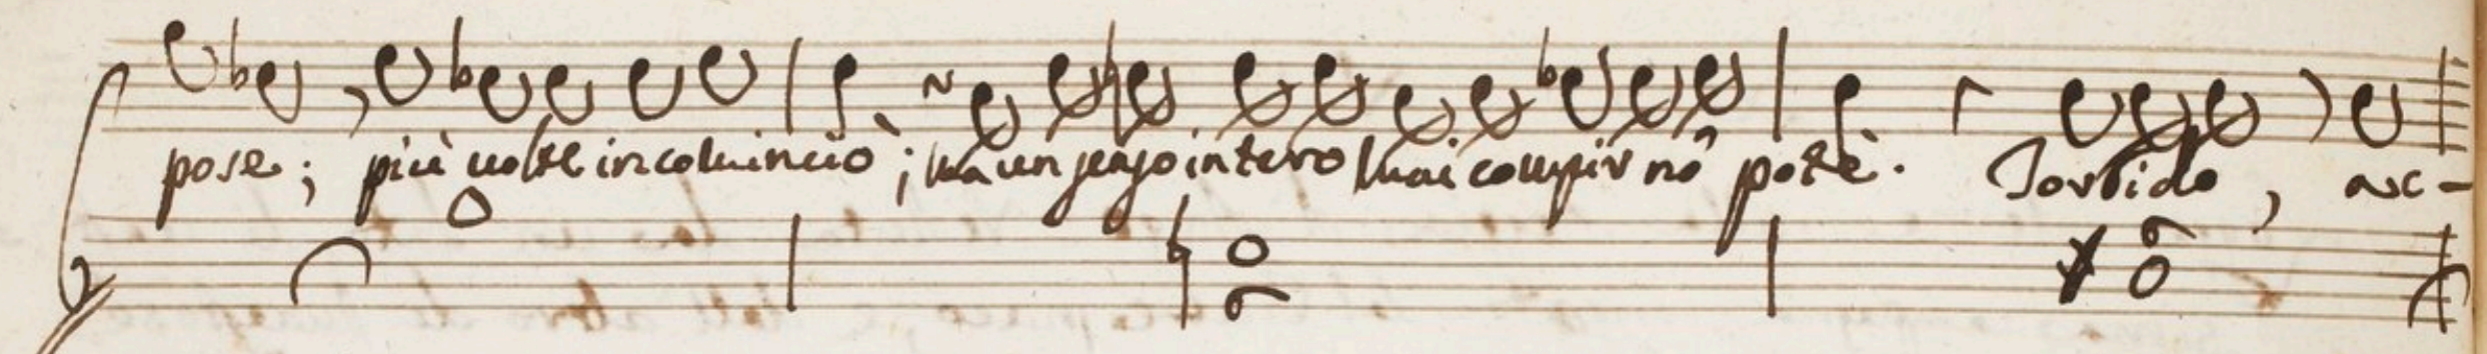 pose; più uolte incominciò; ma un senso intero mai compir nō potè. Torbido, ac-